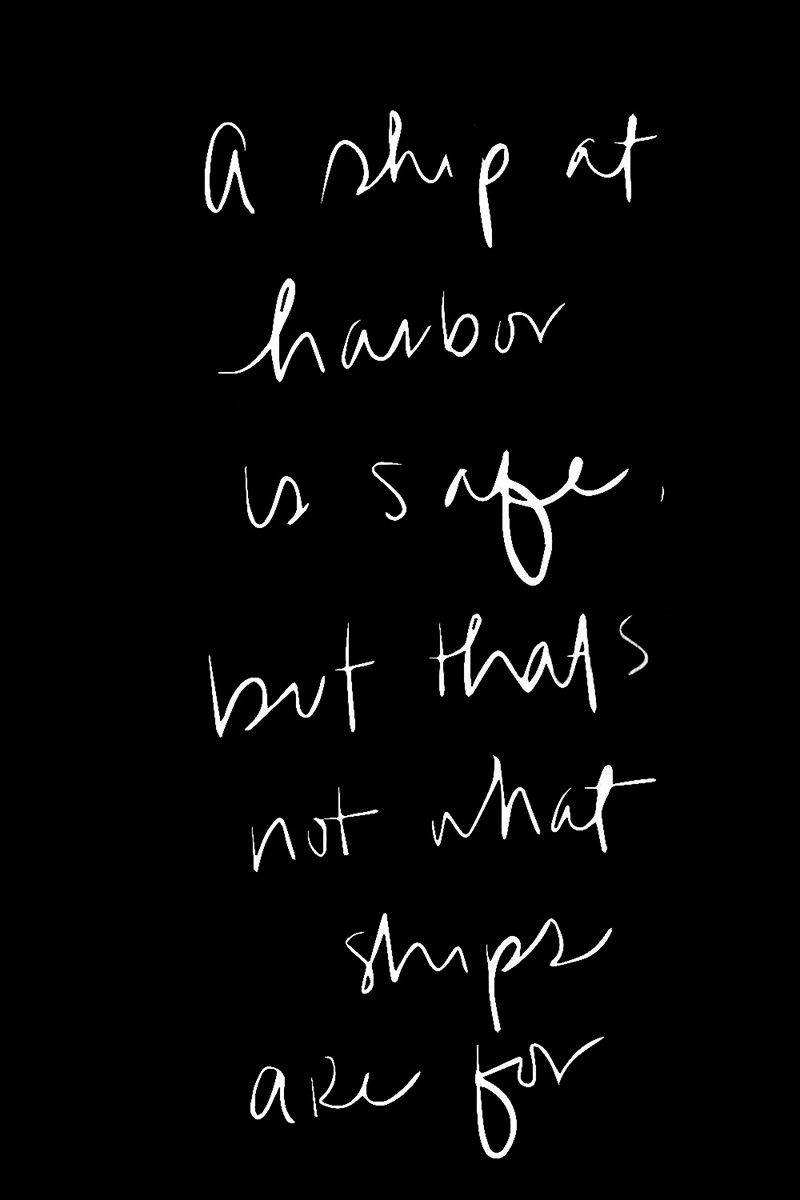 a ship at
harbor
is safe.
but thats
not what
ships
are for